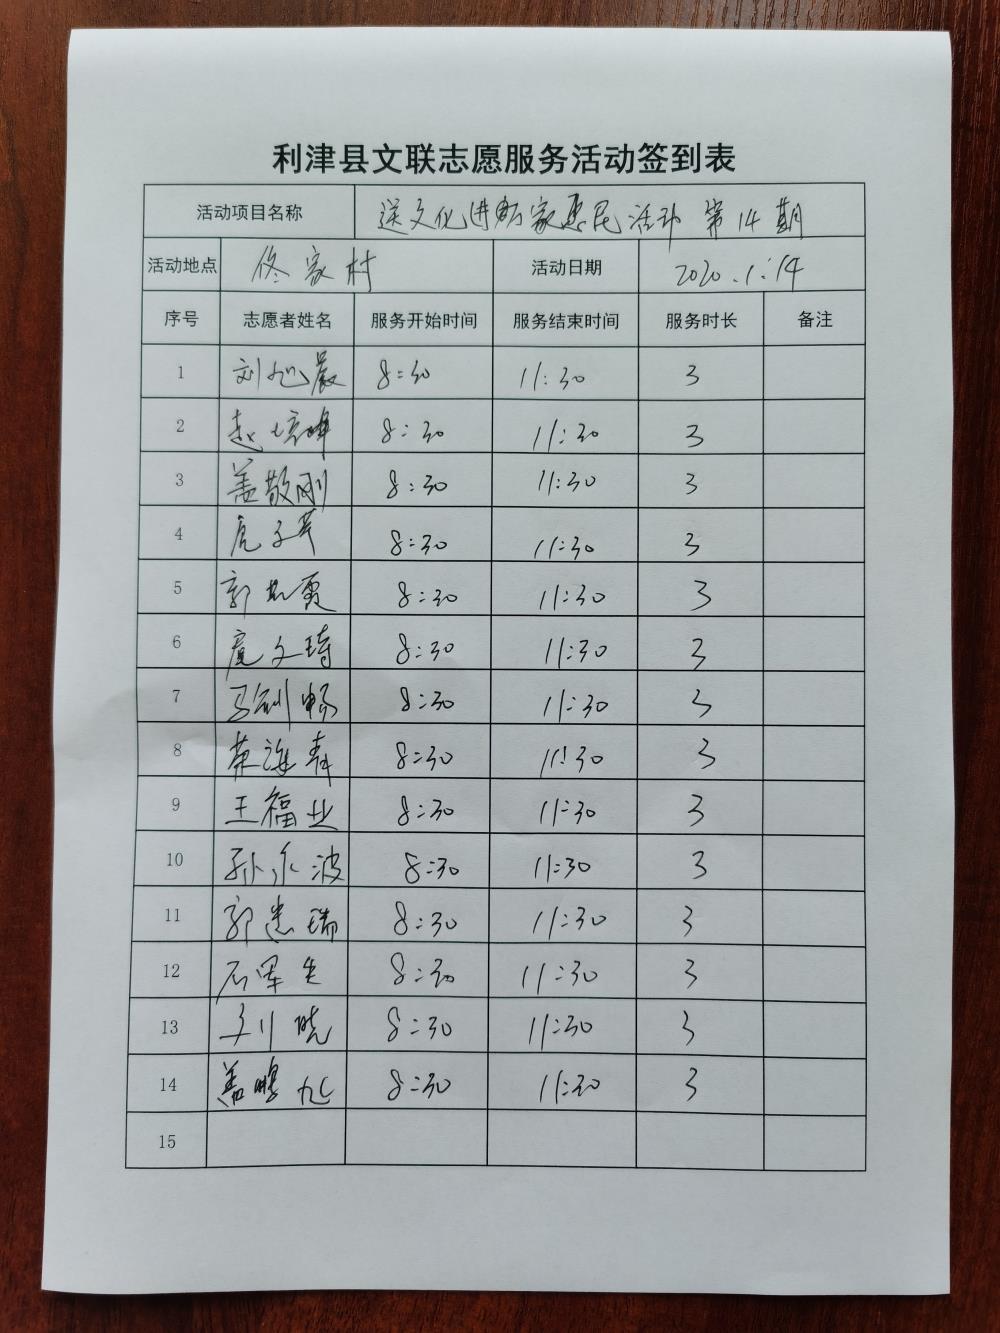 利津县文联志愿服务活动签到表
活动项目名称 送文化进 家惠民活动 第14期
活动地点 佟家村 活动日期 2020.1.14
序号 志愿者姓名 服务开始时间 服务结束时间 服务时长 备注
1 刘旭晨 8:30 11:30 3
2 赵 峰 8:30 11:30 3
3 盖敬刚 8:30 11:30 3
4 8:30 11:30 3
5 郭 霞 8:30 11:30 3
6 文琦 8:30 11:30 3
7 马剑畅 8:30 11:30 3
8 8:30 11:30 3
9 王福业 8:30 11:30 3
10 孙永波 8:30 11:30 3
11 郭 瑞 8:30 11:30 3
12 石军生 8:30 11:30 3
13 晓 8:30 11:30 3
14 盖鹏 8:30 11:30 3
15